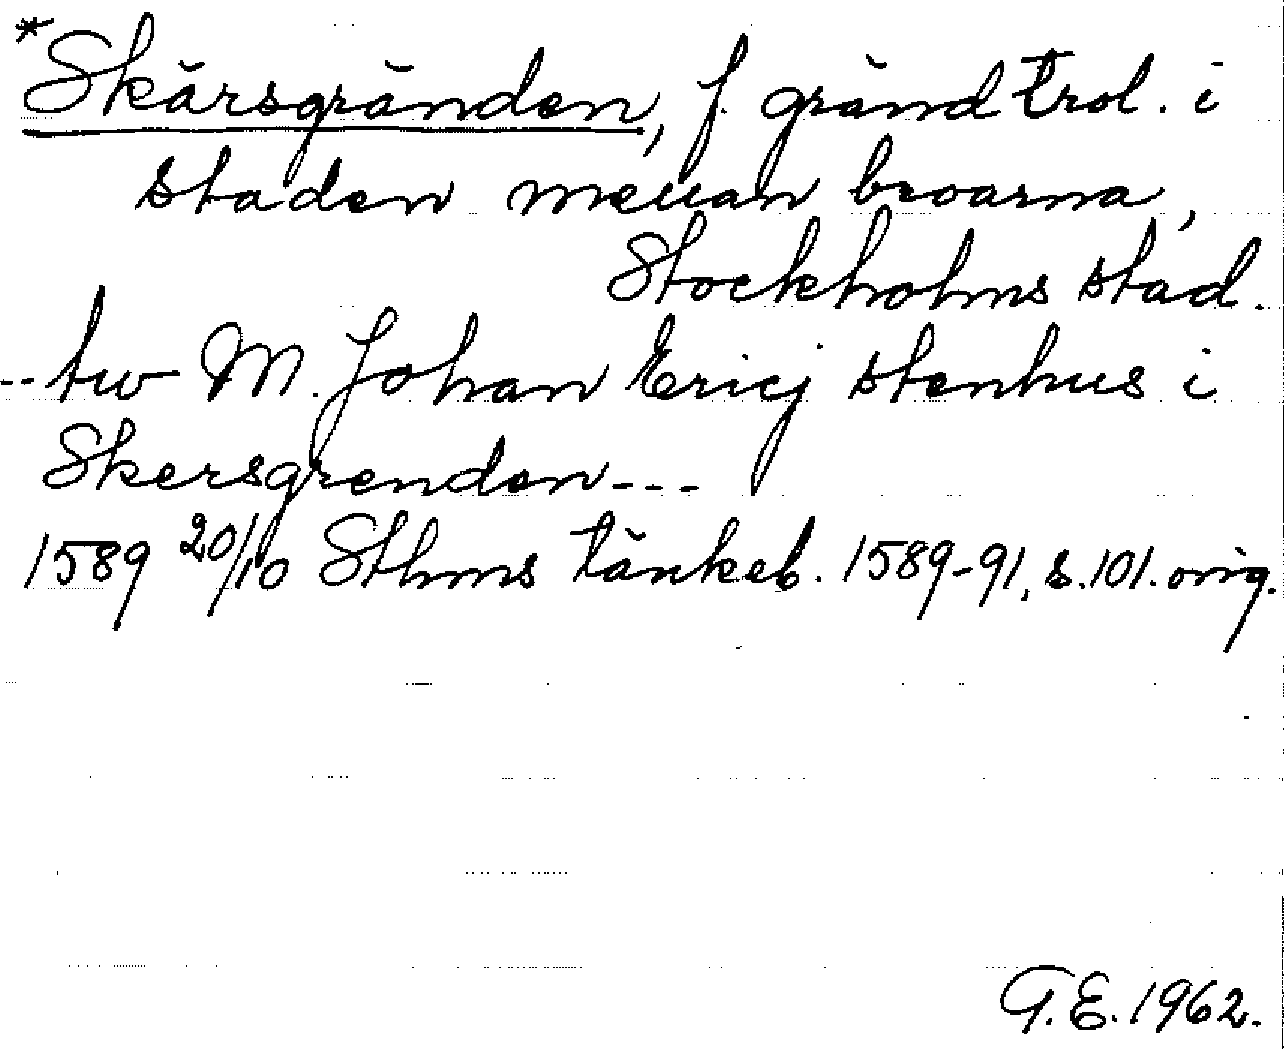 *Skärsgränden, f. gränd trol. i
staden mellan broarna,
Stockholms stad.
-- tw M. Johan Ericj stenhus i
Skersgrenden ---
1589 20/10 Sthms tänkeb. 1589-91, s. 101. orig.
G.E. 1962.